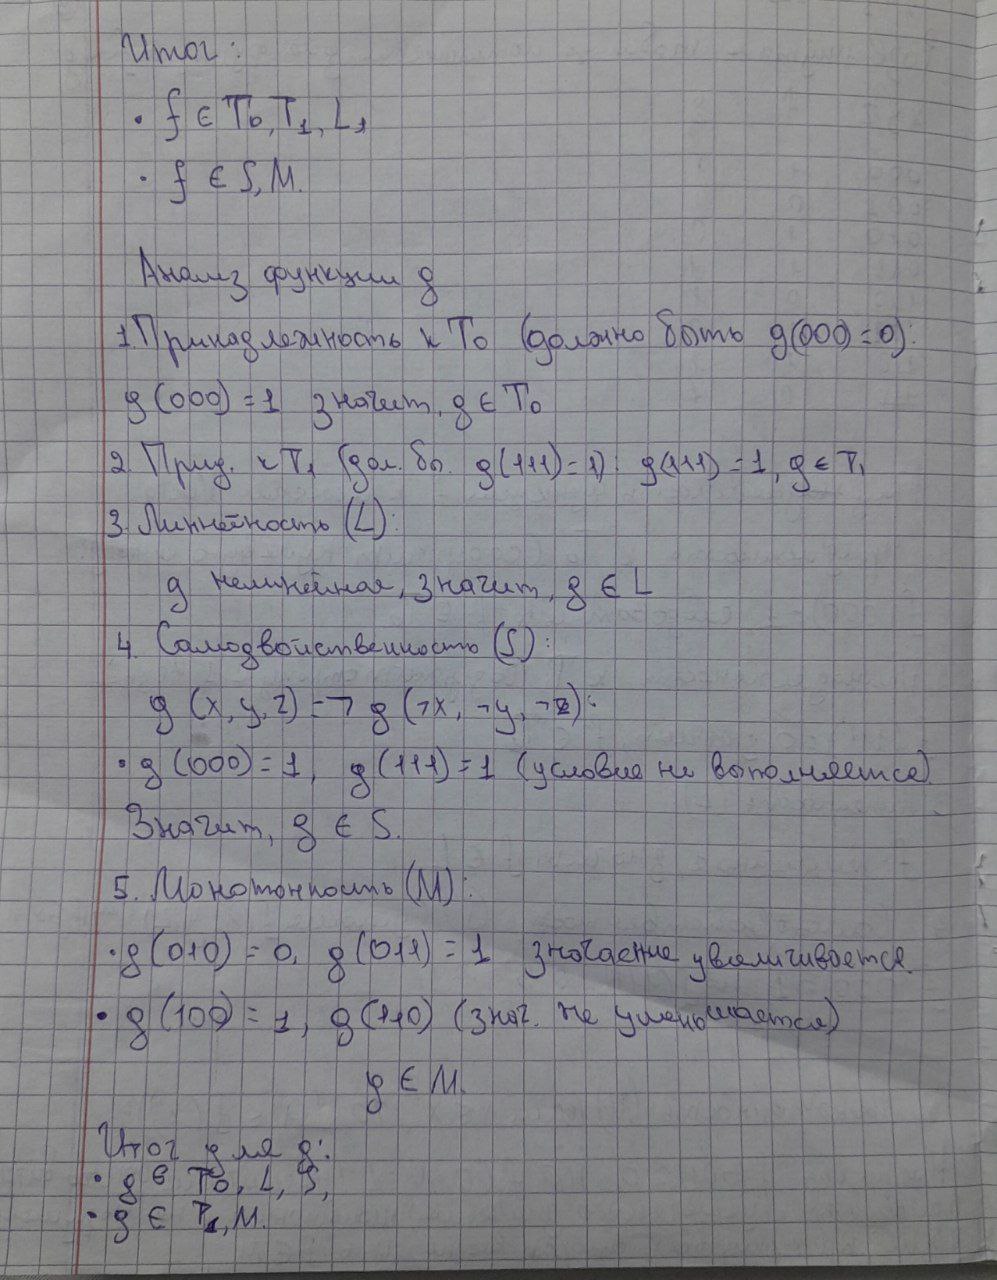 Итог:
· f ∈ T₀, T₁, L,
· f ∈ S, M.
Анализ функции g
1. Принадлежность к T₀ (должно быть g(000)=0):
g(000)=1 значит, g ∈ T₀
2. Прид. к T₁ (дол. бы. g(111)=1): g(111)=1, g ∈ T₁
3. Линнейность (L):
g нелинейная, значит, g ∈ L
4. Самодвойственность (S):
g (x, y, z) = ¬ g (¬x, ¬y, ¬z):
· g(000)=1, g(111)=1 (условие не выполняется)
Значит, g ∈ S.
5. Монотонность (M):
· g(010)=0, g(011)=1 значение увеличивается.
· g(100)=1, g(110) (знач. не уменьшается)
g ∈ M.
Итог для g:
· g ∈ T₀, L, S,
· g ∈ T₁, M.